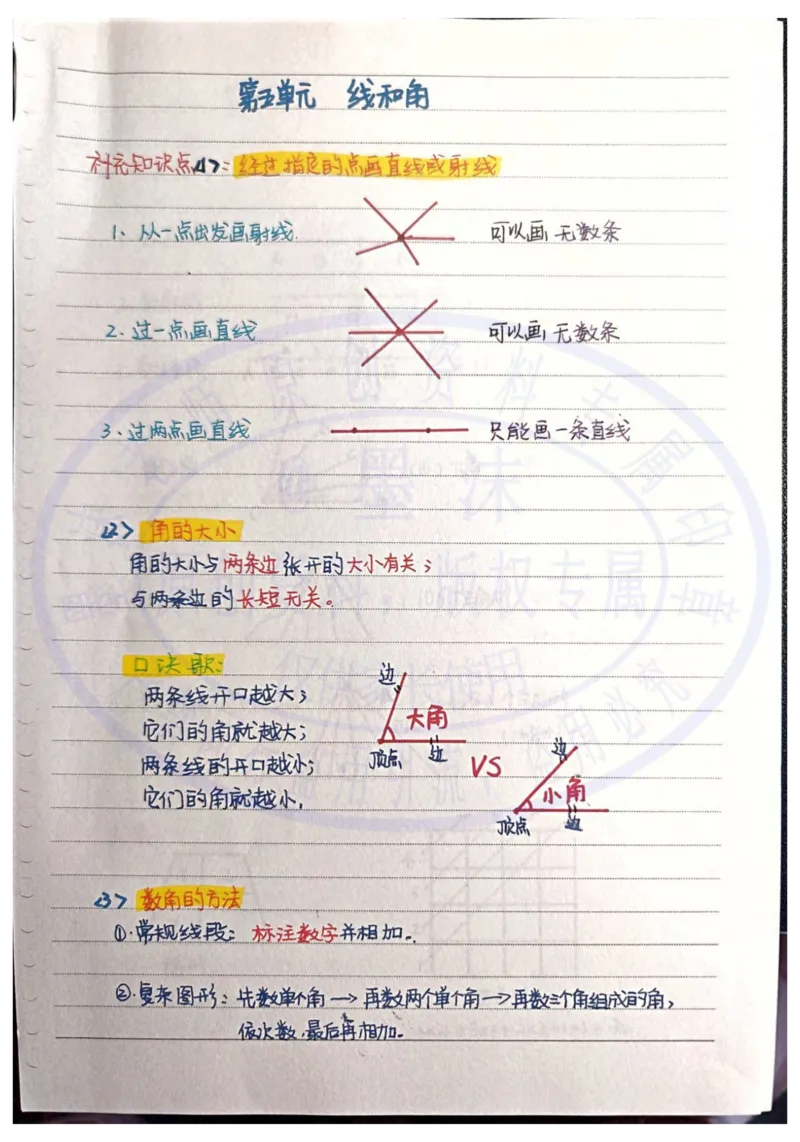 第五单元 线和角
补充知识点<1>：经过指定的点画直线或射线
1、从一点出发画射线. 可以画 无数条
2、过一点画直线 可以画 无数条
3、过两点画直线 只能画一条直线
<2> 角的大小
角的大小与两条边张开的大小有关；
与两条边的长短无关。
口诀歌：
两条线开口越大；
它们的角就越大；
两条线的开口越小；
它们的角就越小.
边
大角
顶点 边
VS
边
小角
顶点 边
<3> 数角的方法
①.常规线段：标注数字并相加.
②.复杂图形：先数单个角→再数两个单个角→再数三个角组成的角，
依次数.最后再相加.
原创资料
墨沫
版权专属